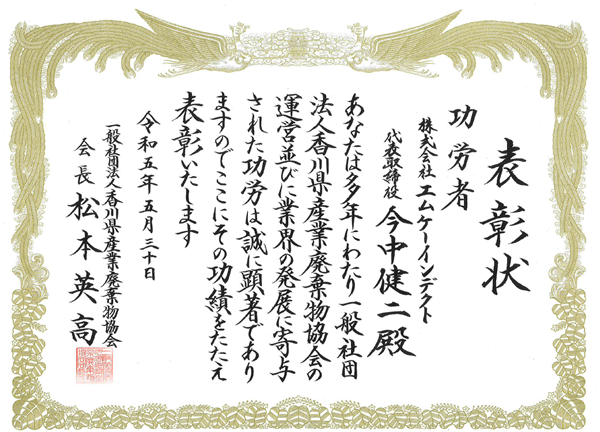 表彰状
功労者
株式会社 エムケーインデクト
代表取締役 今中健二殿
あなたは多年にわたり一般社団
法人香川県産業廃棄物協会の
運営並びに業界の発展に寄与
された功労は誠に顕著であり
ますのでここにその功績をたたえ
表彰いたします
令和五年五月三十日
一般社団法人香川県産業廃棄物協会
会長 松本英高